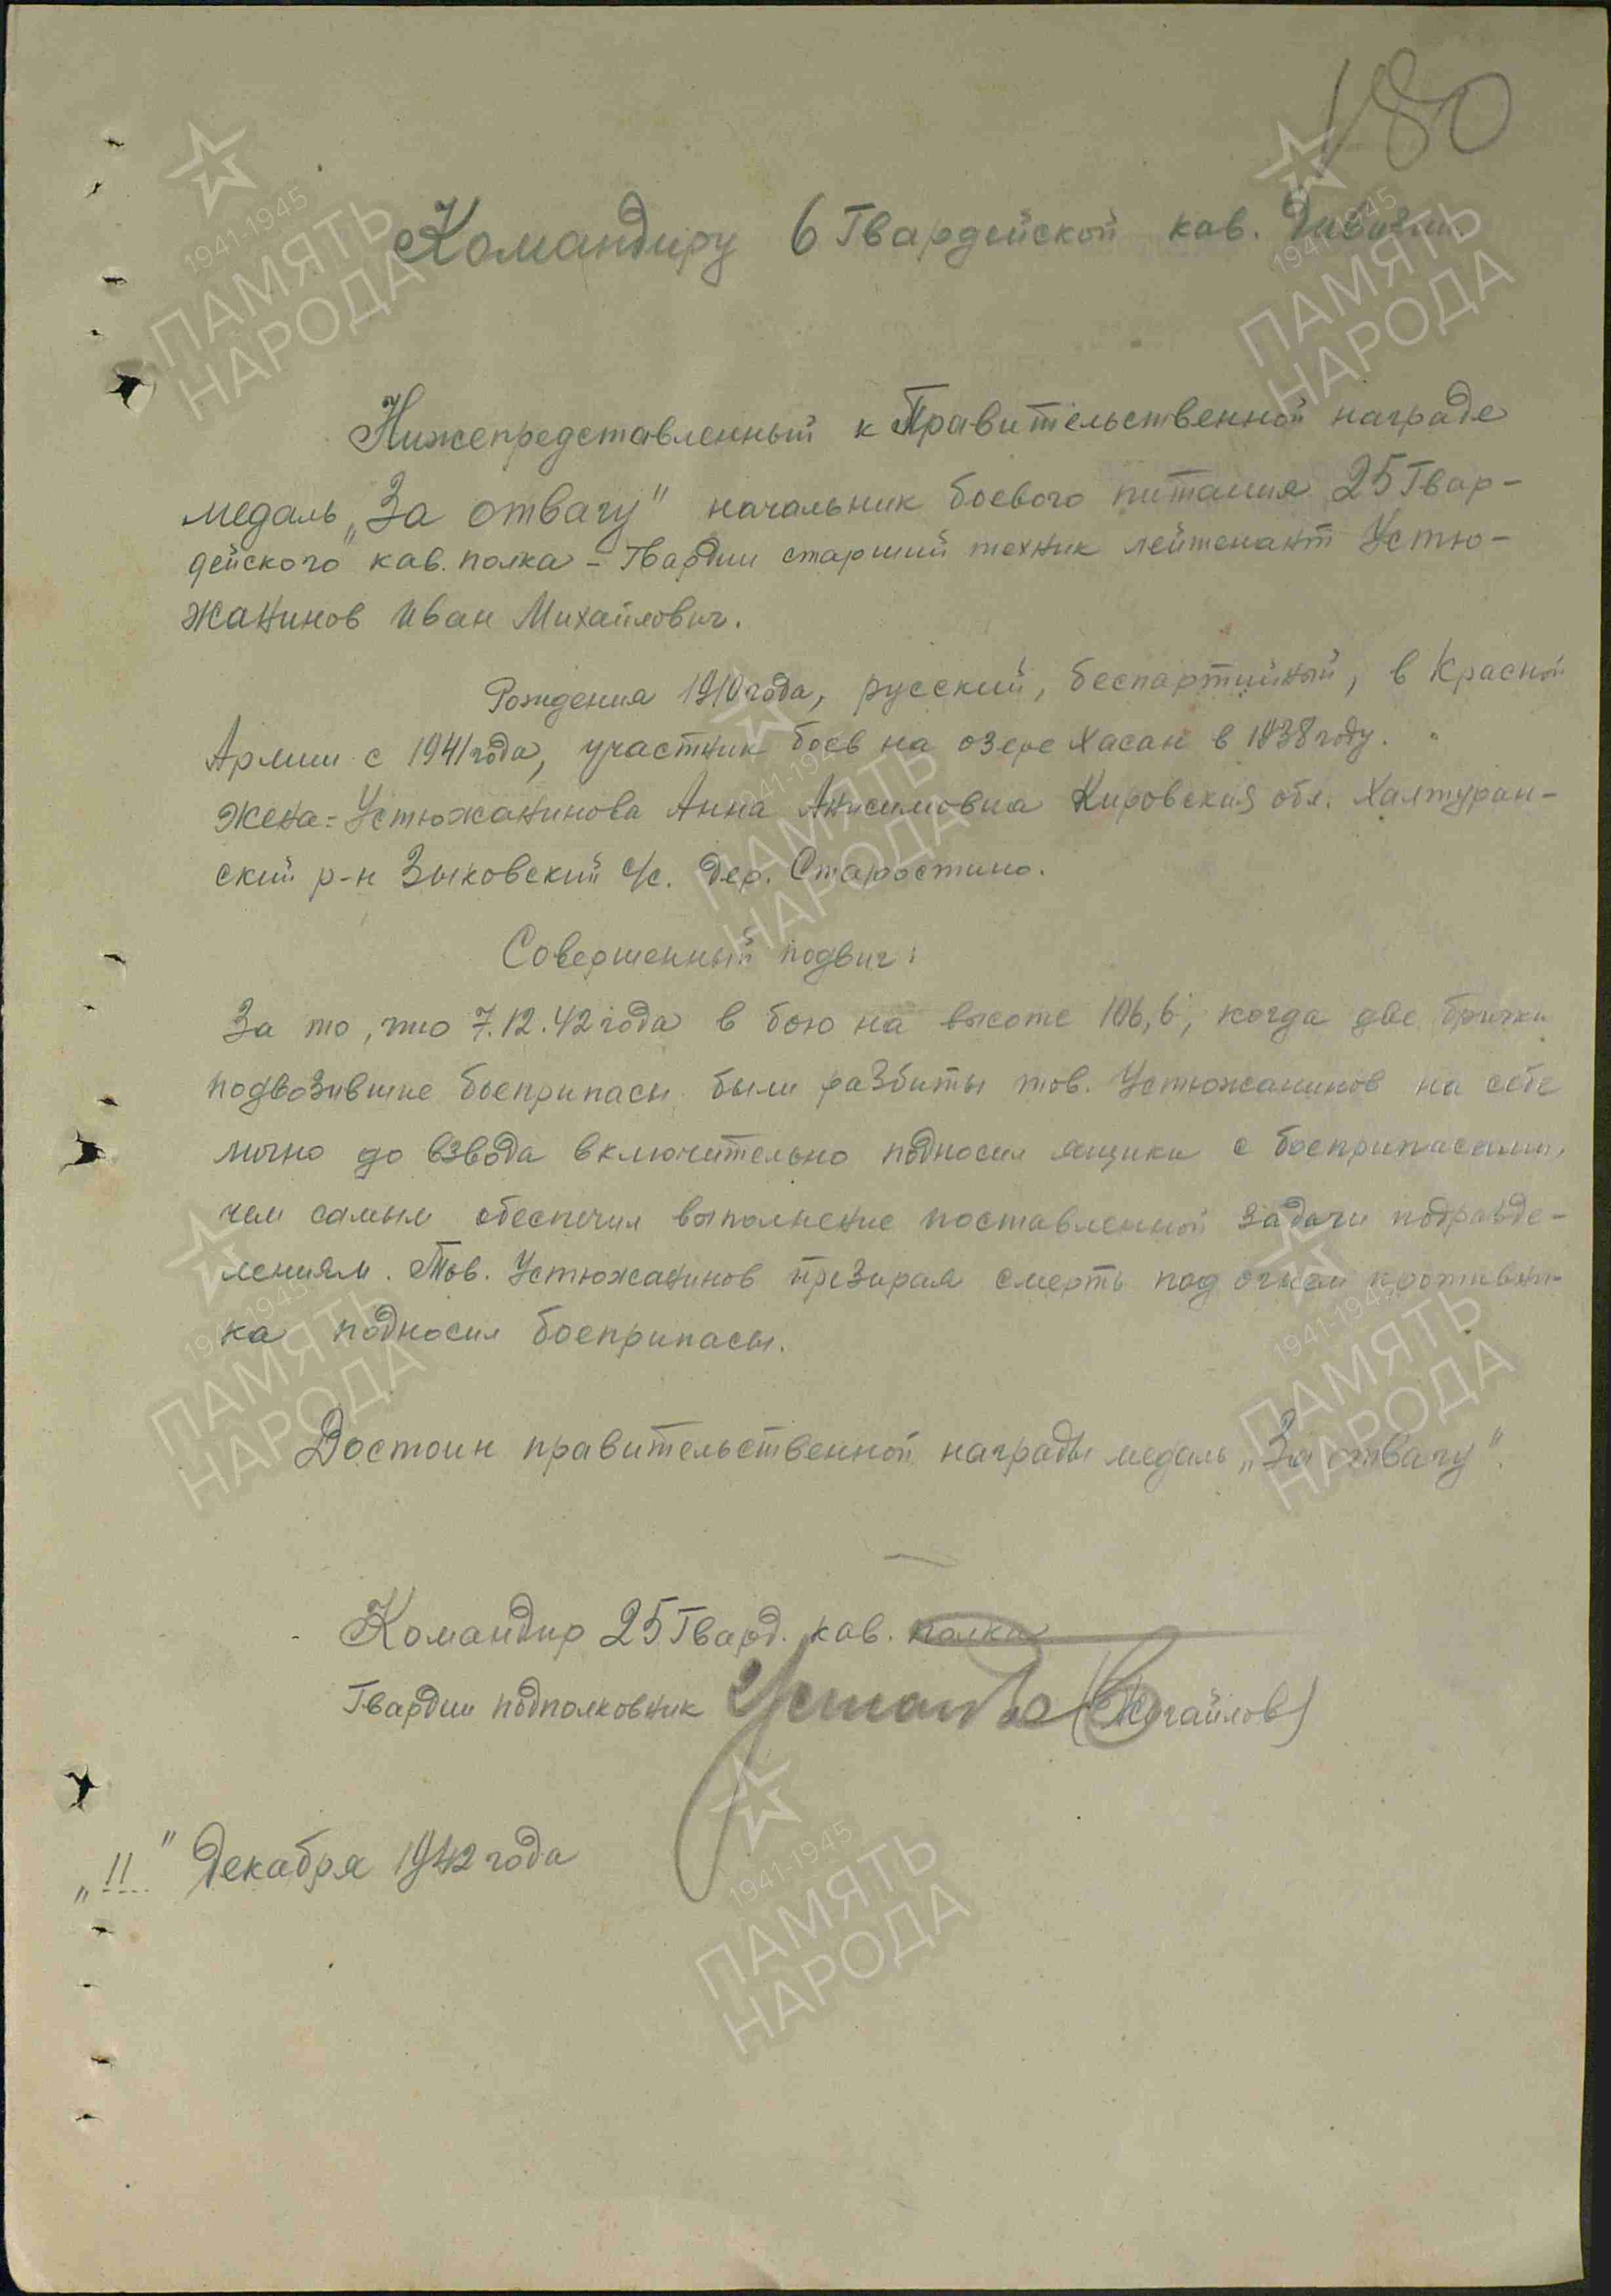 180
Командиру 6 Гвардейской кав. Дивизии
Нижепредставленный к Правительственной награде
медаль „За отвагу" начальник боевого питания 25 Гвар-
дейского кав. полка - Гвардии старший техник лейтенант Устю-
жанинов Иван Михайлович.
Рождения 1910 года, русский, беспартийный, в Красной
Армии с 1941 года, участник боев на озере Хасан в 1938 году.
Жена = Устюжанинова Анна Анисимовна Кировская обл. Халтурин-
ский р-н Зыковский с/с. дер. Старостино.
Совершенный подвиг:
За то, что 7.12.42 года в бою на высоте 106,6, когда две брички
подвозившие боеприпасы были разбиты тов. Устюжанинов на себе
лично до взвода включительно подносил ящики с боеприпасами,
чем самым обеспечил выполнение поставленной задачи подразде-
лениям. Тов. Устюжанинов презирая смерть под огнем противни-
ка подносил боеприпасы.
Достоин правительственной награды медаль „За отвагу".
Командир 25 Гвард. кав. полка
Гвардии подполковник
„11" Декабря 1942 года
1941-1945
ПАМЯТЬ
НАРОДА
1941-1945
ПАМЯТЬ
НАРОДА
1941-1945
ПАМЯТЬ
НАРОДА
1941-1945
ПАМЯТЬ
НАРОДА
1941-1945
ПАМЯТЬ
НАРОДА
1941-1945
ПАМЯТЬ
НАРОДА